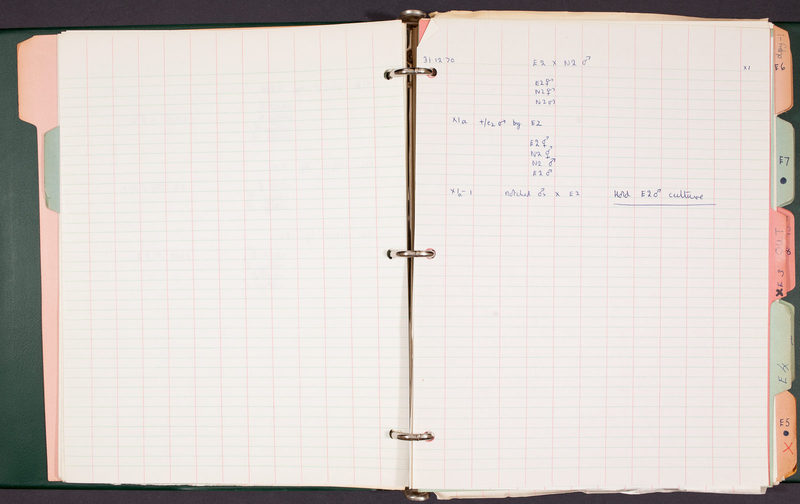 31 12 70 E2 X N2 ♂ X1
E2 ⚥
N2 ⚥
N2 ♂
X1a +/e2 ♂ by E2
E2 ⚥
N2 ⚥
N2 ♂
E2 ♂
X1a-1 notched ♂s X E2 Hold E2♂ culture
dpy-1
E6
E7
E3 OUT
E4
E5
X